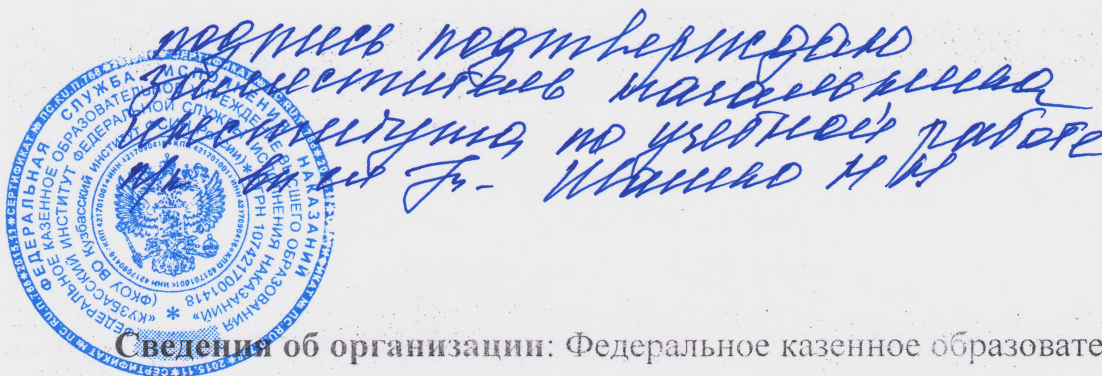 подпись подтверждаю
заместитель начальника
института по учебной работе
п/п вн сл Иваненко Н Н
ФЕДЕРАЛЬНАЯ СЛУЖБА ИСПОЛНЕНИЯ НАКАЗАНИЙ
ФЕДЕРАЛЬНОЕ КАЗЕННОЕ ОБРАЗОВАТЕЛЬНОЕ УЧРЕЖДЕНИЕ ВЫСШЕГО ОБРАЗОВАНИЯ
«КУЗБАССКИЙ ИНСТИТУТ ФЕДЕРАЛЬНОЙ СЛУЖБЫ ИСПОЛНЕНИЯ НАКАЗАНИЙ»
(ФКОУ ВО Кузбасский институт ФСИН России) * ОГРН 1074217001418 *
Сведения об организации: Федеральное казенное образовате